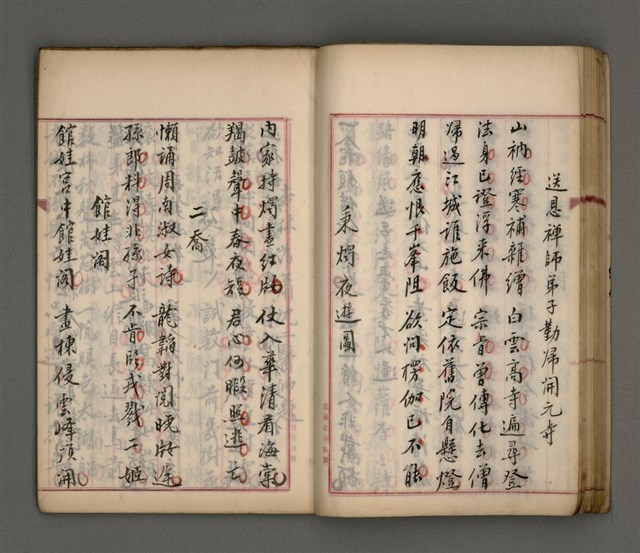 送恩禪師弟子勤歸開元寺
山衲經寒補雜繒 白雲高寺遍尋登
法身已證浮來佛 宗旨曾傳化去僧
歸過江城誰施飯 定依舊院自懸燈
明朝應恨千峯阻 欲問楞伽已不能
秉燭夜遊圖
內家持燭畫紅 仗入華清看海棠
羯鼓聲中春夜短 君心何暇照逃亡
二喬
懶誦周南淑女詩 龍韜對閱曉 遲
孫郎料得非孫子 不肯臨戎戮二姬
館娃閣
館娃宮中館娃閣 畫棟侵雲峰頂開